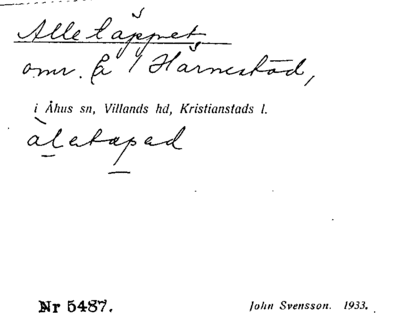 Alletäppet
omr. å Härnestad,
i Åhus sn, Villands hd, Kristianstads l.
Nr 5487.
John Svensson. 1933.